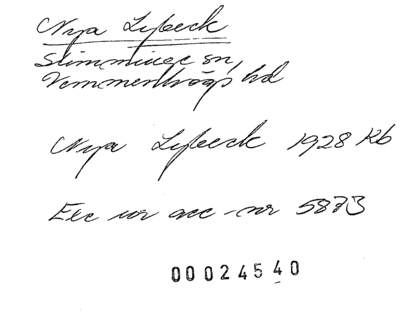 Nya Lybeck
Slimminge sn,
Vemmenhögs hd
Nya Lybeck 1928 Kb
Exc ur acc-nr 5873
00024540